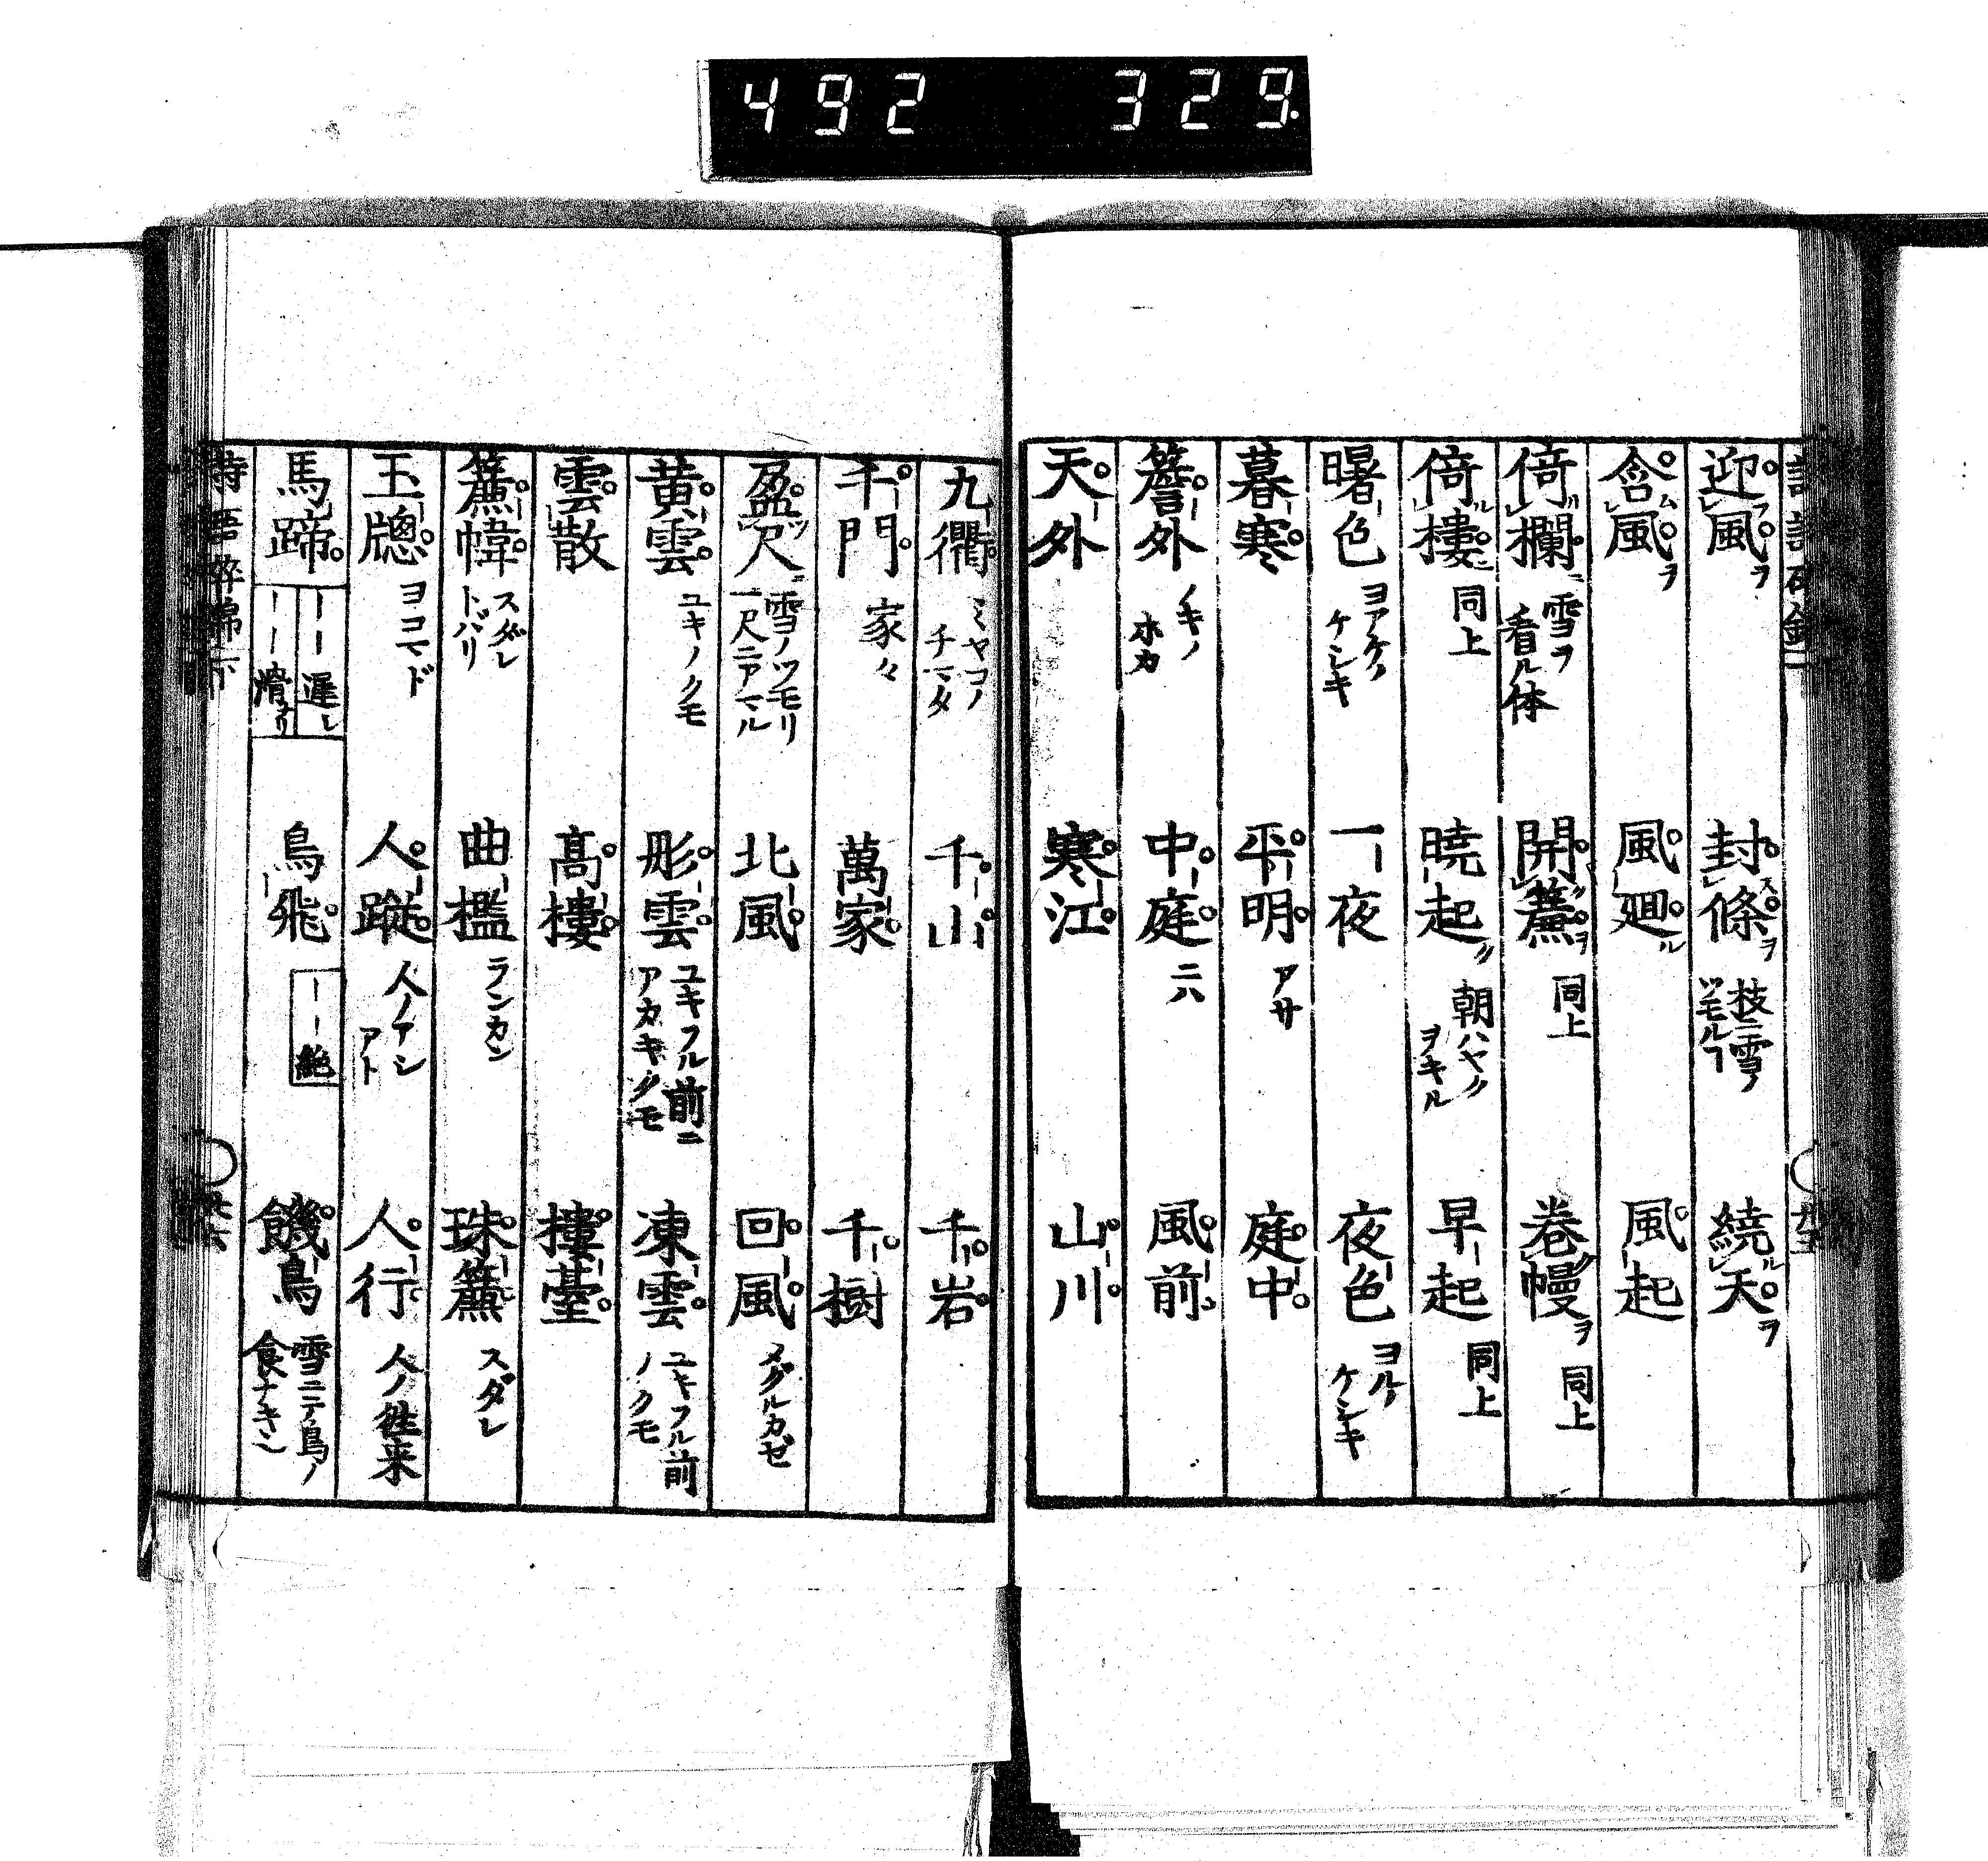 492 329
迎フ風ヲ 封スル條ヲ 枝ニ雪ノツモルヿ 繞ル天ヲ
含ム風ヲ 風廻ル 風起
倚ル欄ニ 雪ヲ看ル体 開ク簾ヲ 同上 巻ク幔ヲ 同上
倚ル樓ニ 同上 暁起 朝ハヤクヲキル 早起 同上
曙色 ヨアケノケシキ 一夜 夜色 ヨルノケシキ
暮寒 平明 アサ 庭中
簷外 ノキノホカ 中庭 ニハ 風前
天外 寒江 山川
九衢 ミヤコノチマタ 千山 千岩
千門 家々 萬家 千樹
盈ツ尺ニ 雪ノツモリ一尺ニアマル 北風 回風 メグルカゼ
黄雲 ユキノクモ 彤雲 ユキフル前ニアカキクモ 凍雲 ユキフル前ノクモ
雲散 高樓 樓臺
簾幃 スダレトバリ 曲檻 ランカン 珠簾 スダレ
玉牕 ヨコマド 人蹤 人ノアシアト 人行 人ノ徃来
馬蹄 ーー遲シ ーー滑ナリ 鳥飛 ーー絶 饑鳥 雪ニテ鳥ノ食ナキ也
詩語砕錦下